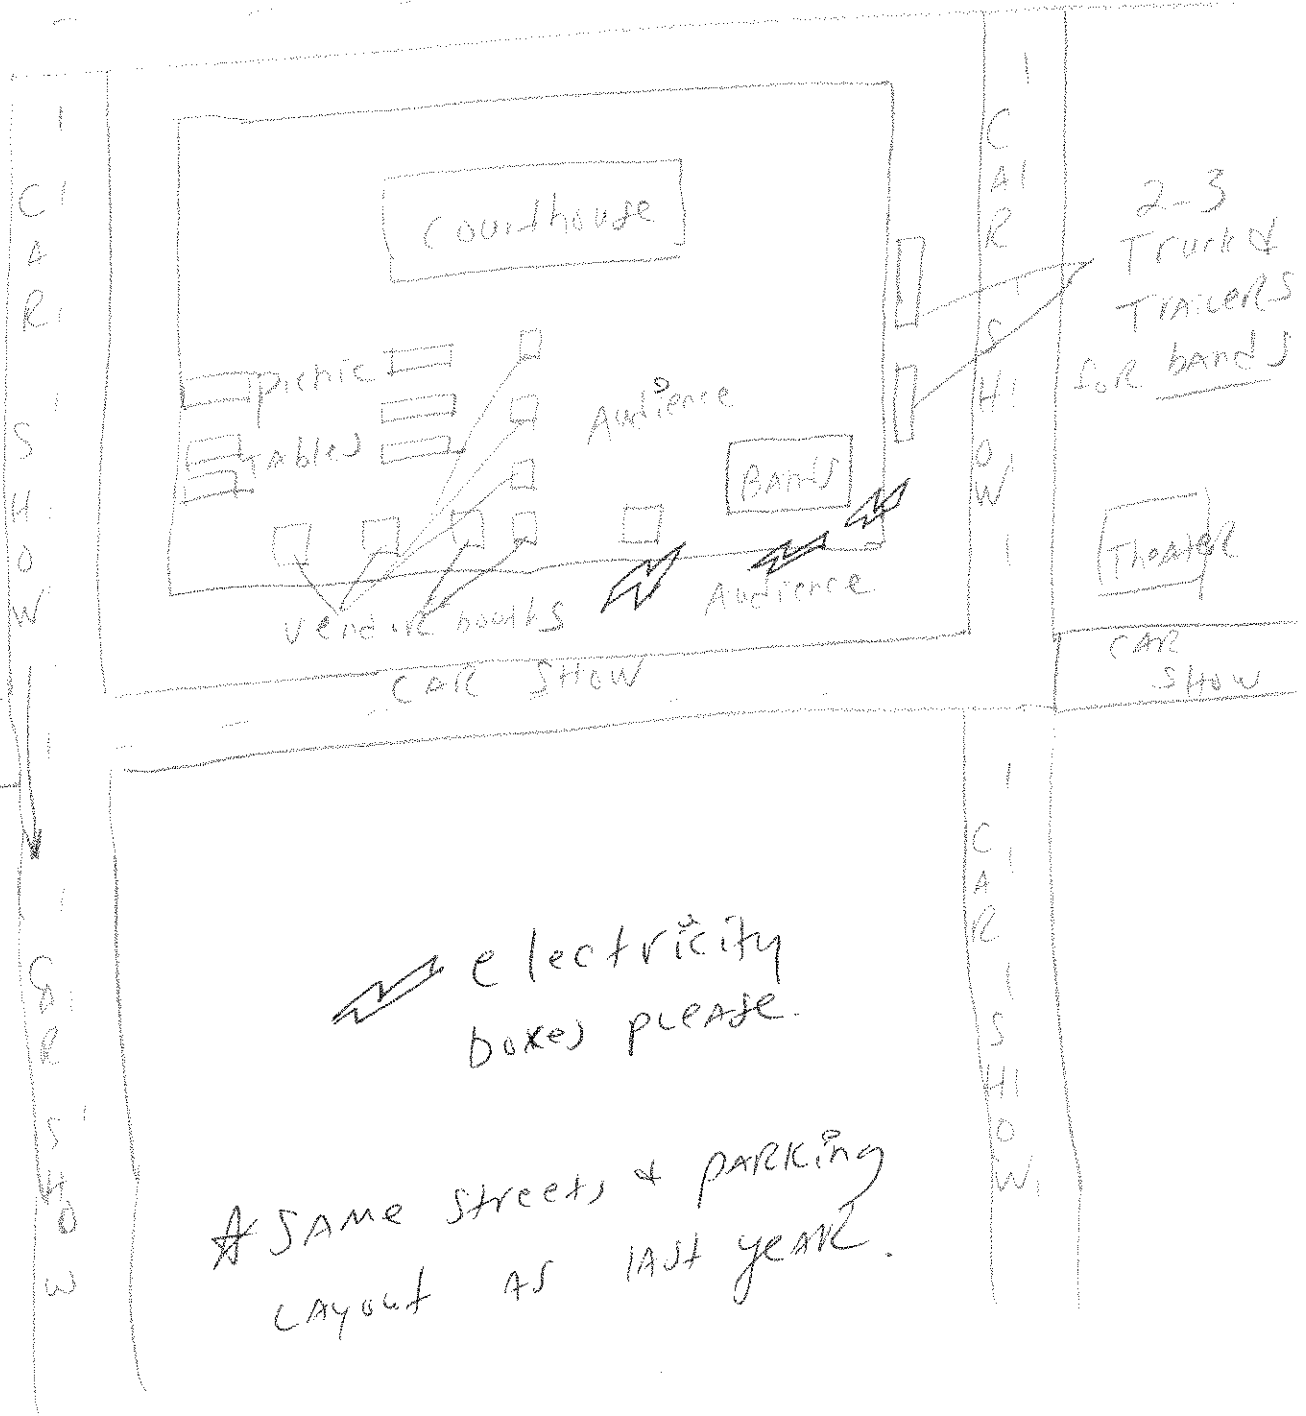 CAR SHOW
Courthouse
CAR SHOW
2-3
Truck &
TRAILERS
for bands
picnic
TABLES
Audience
BANDS
Theater
Vendor booths
Audience
CAR SHOW
CAR
SHOW
CAR SHOW
CAR SHOW
electricity
boxes please.
SAME streets & PARKing
LAYOUT AS lAst yeAR.